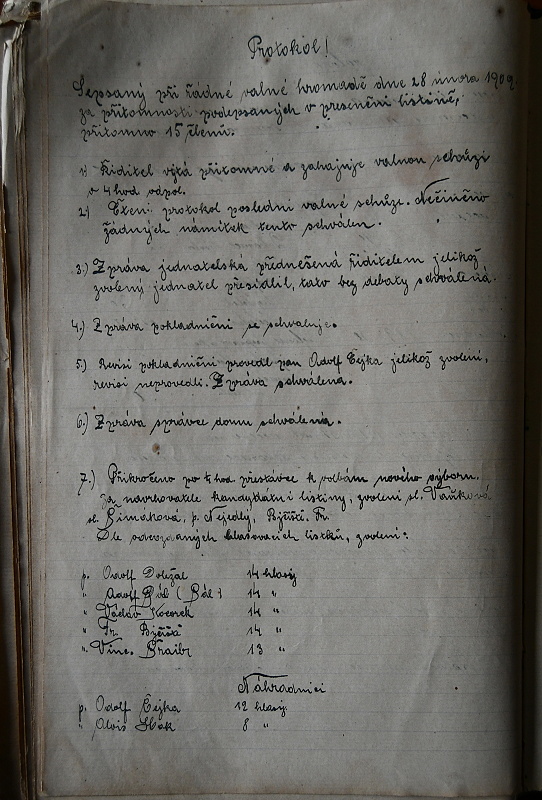 Protokol!
Sepsaný při řádné valné hromadě dne 28 února 1909.
za přítomnosti podepsaných v presenční listině,
přítomno 15 členů.
1) Řiditel vítá přítomné a zahajuje valnou schůzi
v 4 hod odpol.
2) Čtení protokol poslední valné schůze. Nečiněno
žádných námitek tento schválen.
3.) Zpráva jednatelská přednešená řiditelem jelikož
zvolený jednatel přesídlil, tato bez debaty schválená.
4.) Zpráva pokladniční se schvaluje.
5.) Revisi pokladniční provedl pan Adolf Čejka jelikož zvolení,
revisi neprovedli. Zpráva schválena.
6.) Zpráva správce domu schválena.
7.) Přikročeno po ¼ hod přestávce k volbám nového výboru.
za navrhovatele kandydatní listiny, zvolení sl. Vaňková
sl. Šimáková, p. Nejedlý, Fr.
Dle odevzdaných hlasovacích lístků, zvolení:
p. Adolf Doležal 14 hlasy
" Adolf Bál (Bál) 14 "
" Václav Kocorek 14 "
" Fr. 14 "
" Vinc. 13 "
Náhradníci
p. Adolf Čejka 12 hlasy.
" Alois 8 "